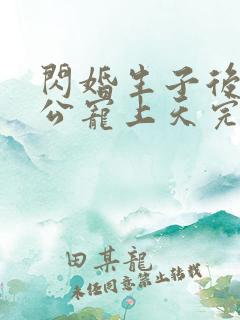 閃婚生子後
公寵上天完
田某龍
未經同意禁止轉載